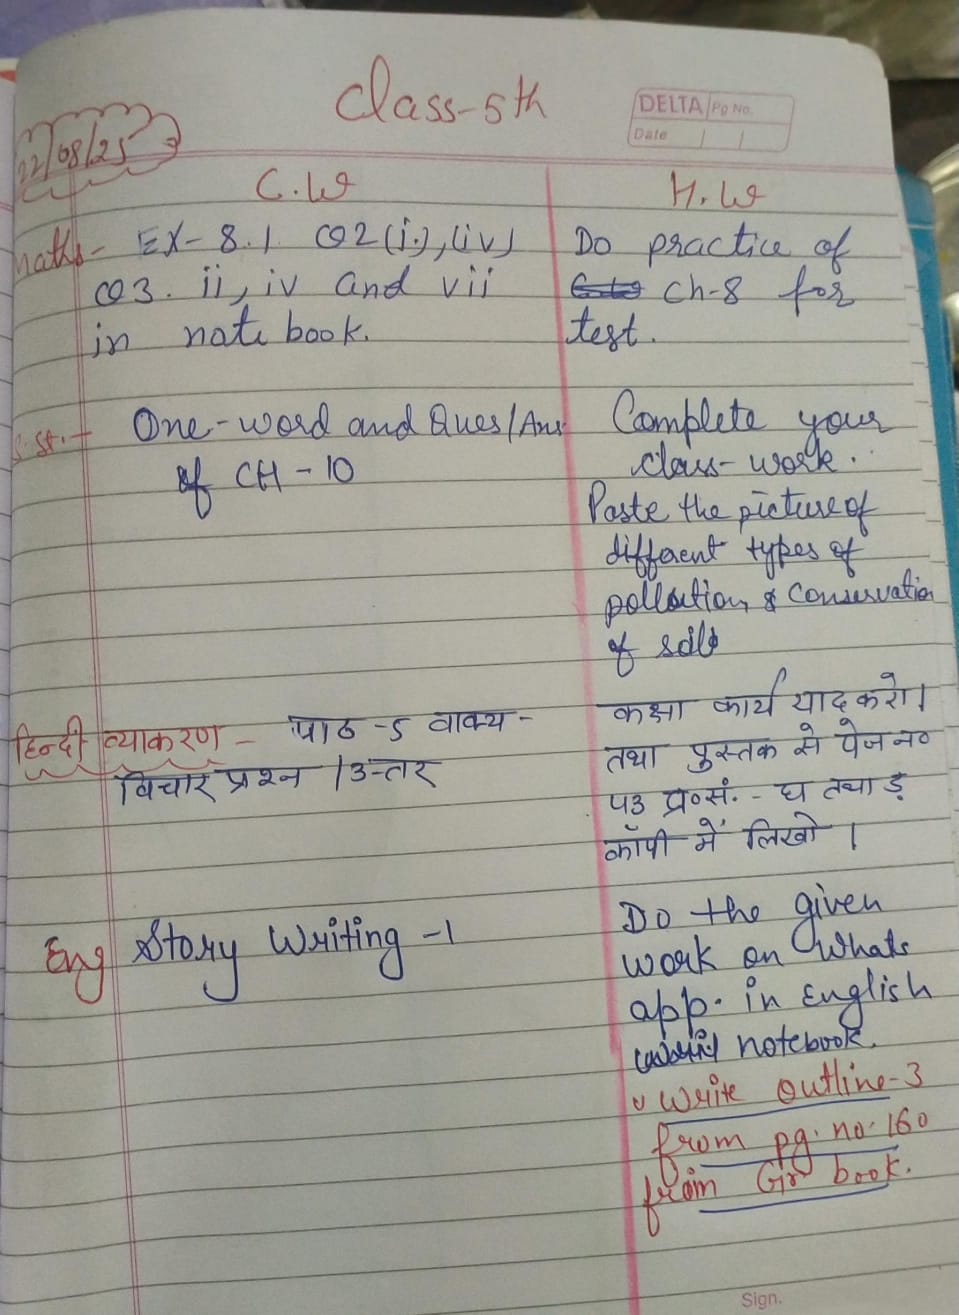 Class-5th
DELTA Pg No.
Date
22/08/25
C.W
H.W
Maths- EX- 8.1 Q2(i), (iv)
Q3. ii, iv and vii
in note book.
Do practice of
ch-8 for
test.
S.St.- One-word and Ques/Ans
of CH-10
Complete your
class-work.
Paste the picture of
different types of
pollution & conservation
of soil
हिन्दी व्याकरण - पाठ -5 वाक्य-
विचार प्रश्न / उत्तर
कक्षा कार्य याद करो।
तथा पुस्तक से पेज न०
प्र०सं. - घ तथा ड़
कॉपी में लिखो ।
Eng Story Writing -1
Do the given
work on Whats
app. in English
notebook.
Write outline-3
from pg. no. 160
from Gr book.
Sign.